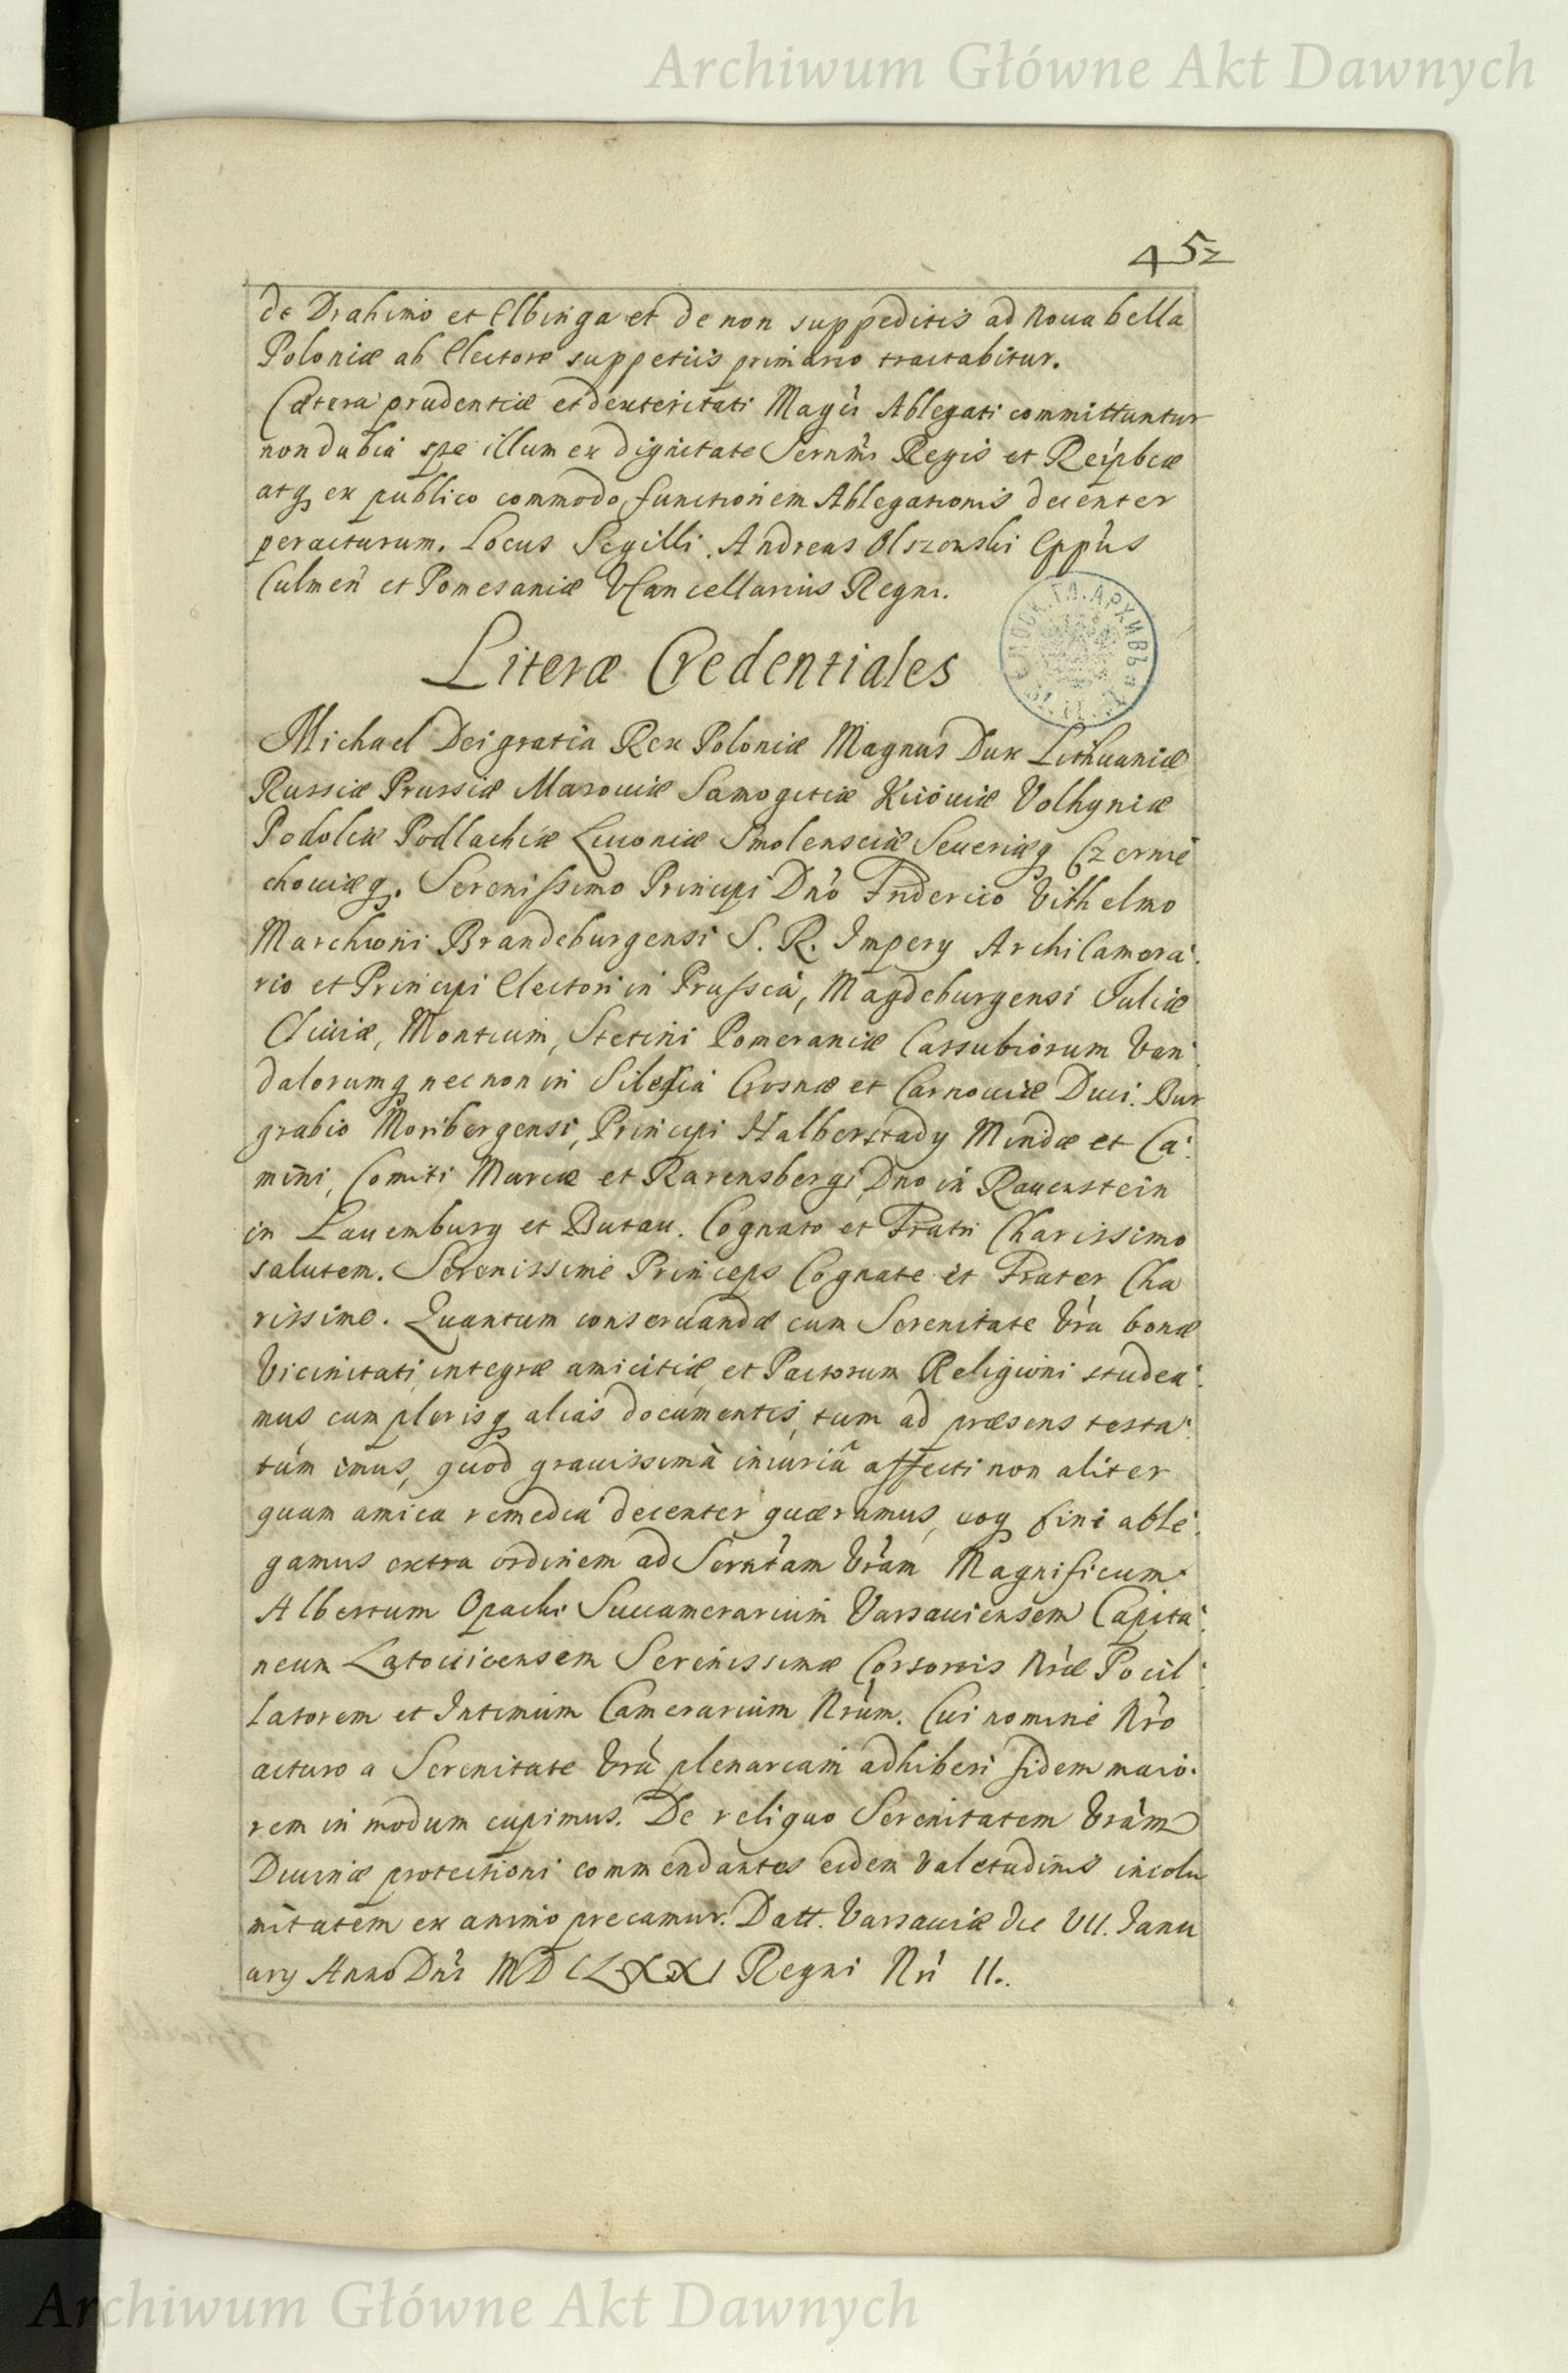 Archiwum Główne Akt Dawnych
452
de Drahimo et Elbinga et de non suppeditis ad noua bella
Poloniæ ab Electore suppetiis primario tractabitur.
Cætera prudentiæ et dexteritati Magci Ablegati committuntur
non dubia spe illum ex dignitate Sernmi Regis et Reipbcæ
atq ex publico commodo functionem Ablegationis decenter
peracturum. Locus Sigilli. Andreas Olszowski Eppus
Culmen et Pomesaniæ VCancellarius Regni.
Literæ Credentiales
Michael Dei gratia Rex Poloniæ Magnus Dux Lithuaniæ
Russiæ Prussiæ Masouiæ Samogitiæ Kiiouiæ Volhyniæ
Podoliæ Podlachiæ Liuoniæ Smolensciæ Seueriæq Czernie
chouiæq. Serenissimo Principi Dno Friderico Vilhelmo
Marchioni Brandeburgensi S. R. Impery ArchiCamera
rio et Principi Electori in Prussia, Magdeburgensi Juliæ
Cliuiæ, Montium, Stetini Pomeraniæ Cassubiorum Van
dalorumq nec non in Silesia Crosnæ et Carnouiæ Duci. Bur
grabio Noribergensi, Principi Halberstady Mindæ et Ca
mini, Comiti Marciæ et Rauensbergi Dno in Rauenstein
in Lauemburg et Butau. Cognato et Fratri Charissimo
salutem. Serenissime Princeps Cognate et Frater Cha
rissime. Quantum conseruandæ cum Serenitate Vra bonæ
Vicinitati, integræ amicitiæ, et Pactorum Religioni studea
mus cum plerisq alias documentis, tum ad præsens testa
tum imus, quod grauissima iniuria affecti non aliter
quam amica remedia decenter quæramus, eoq fine able
gamus extra ordinem ad Serntam Vram Magnificum
Albertum Opacki Succamerarium Varsauiensem Capita
neum Latouicensem Serenissimæ Consortis Nræ Pocil
latorem et Intimum Camerarium Nrum. Cui nomine Nro
acturo a Serenitate Vra plenariam adhiberi fidem maio
rem in modum cupimus. De reliquo Serenitatem Vram
Diuinæ protectioni commendantes eidem valetudinis incolu
mitatem ex animo precamur. Datt. Varsauiæ die VII. Janu
ary Anno Dni MDCLXXI Regni Nri II.
Archiwum Główne Akt Dawnych